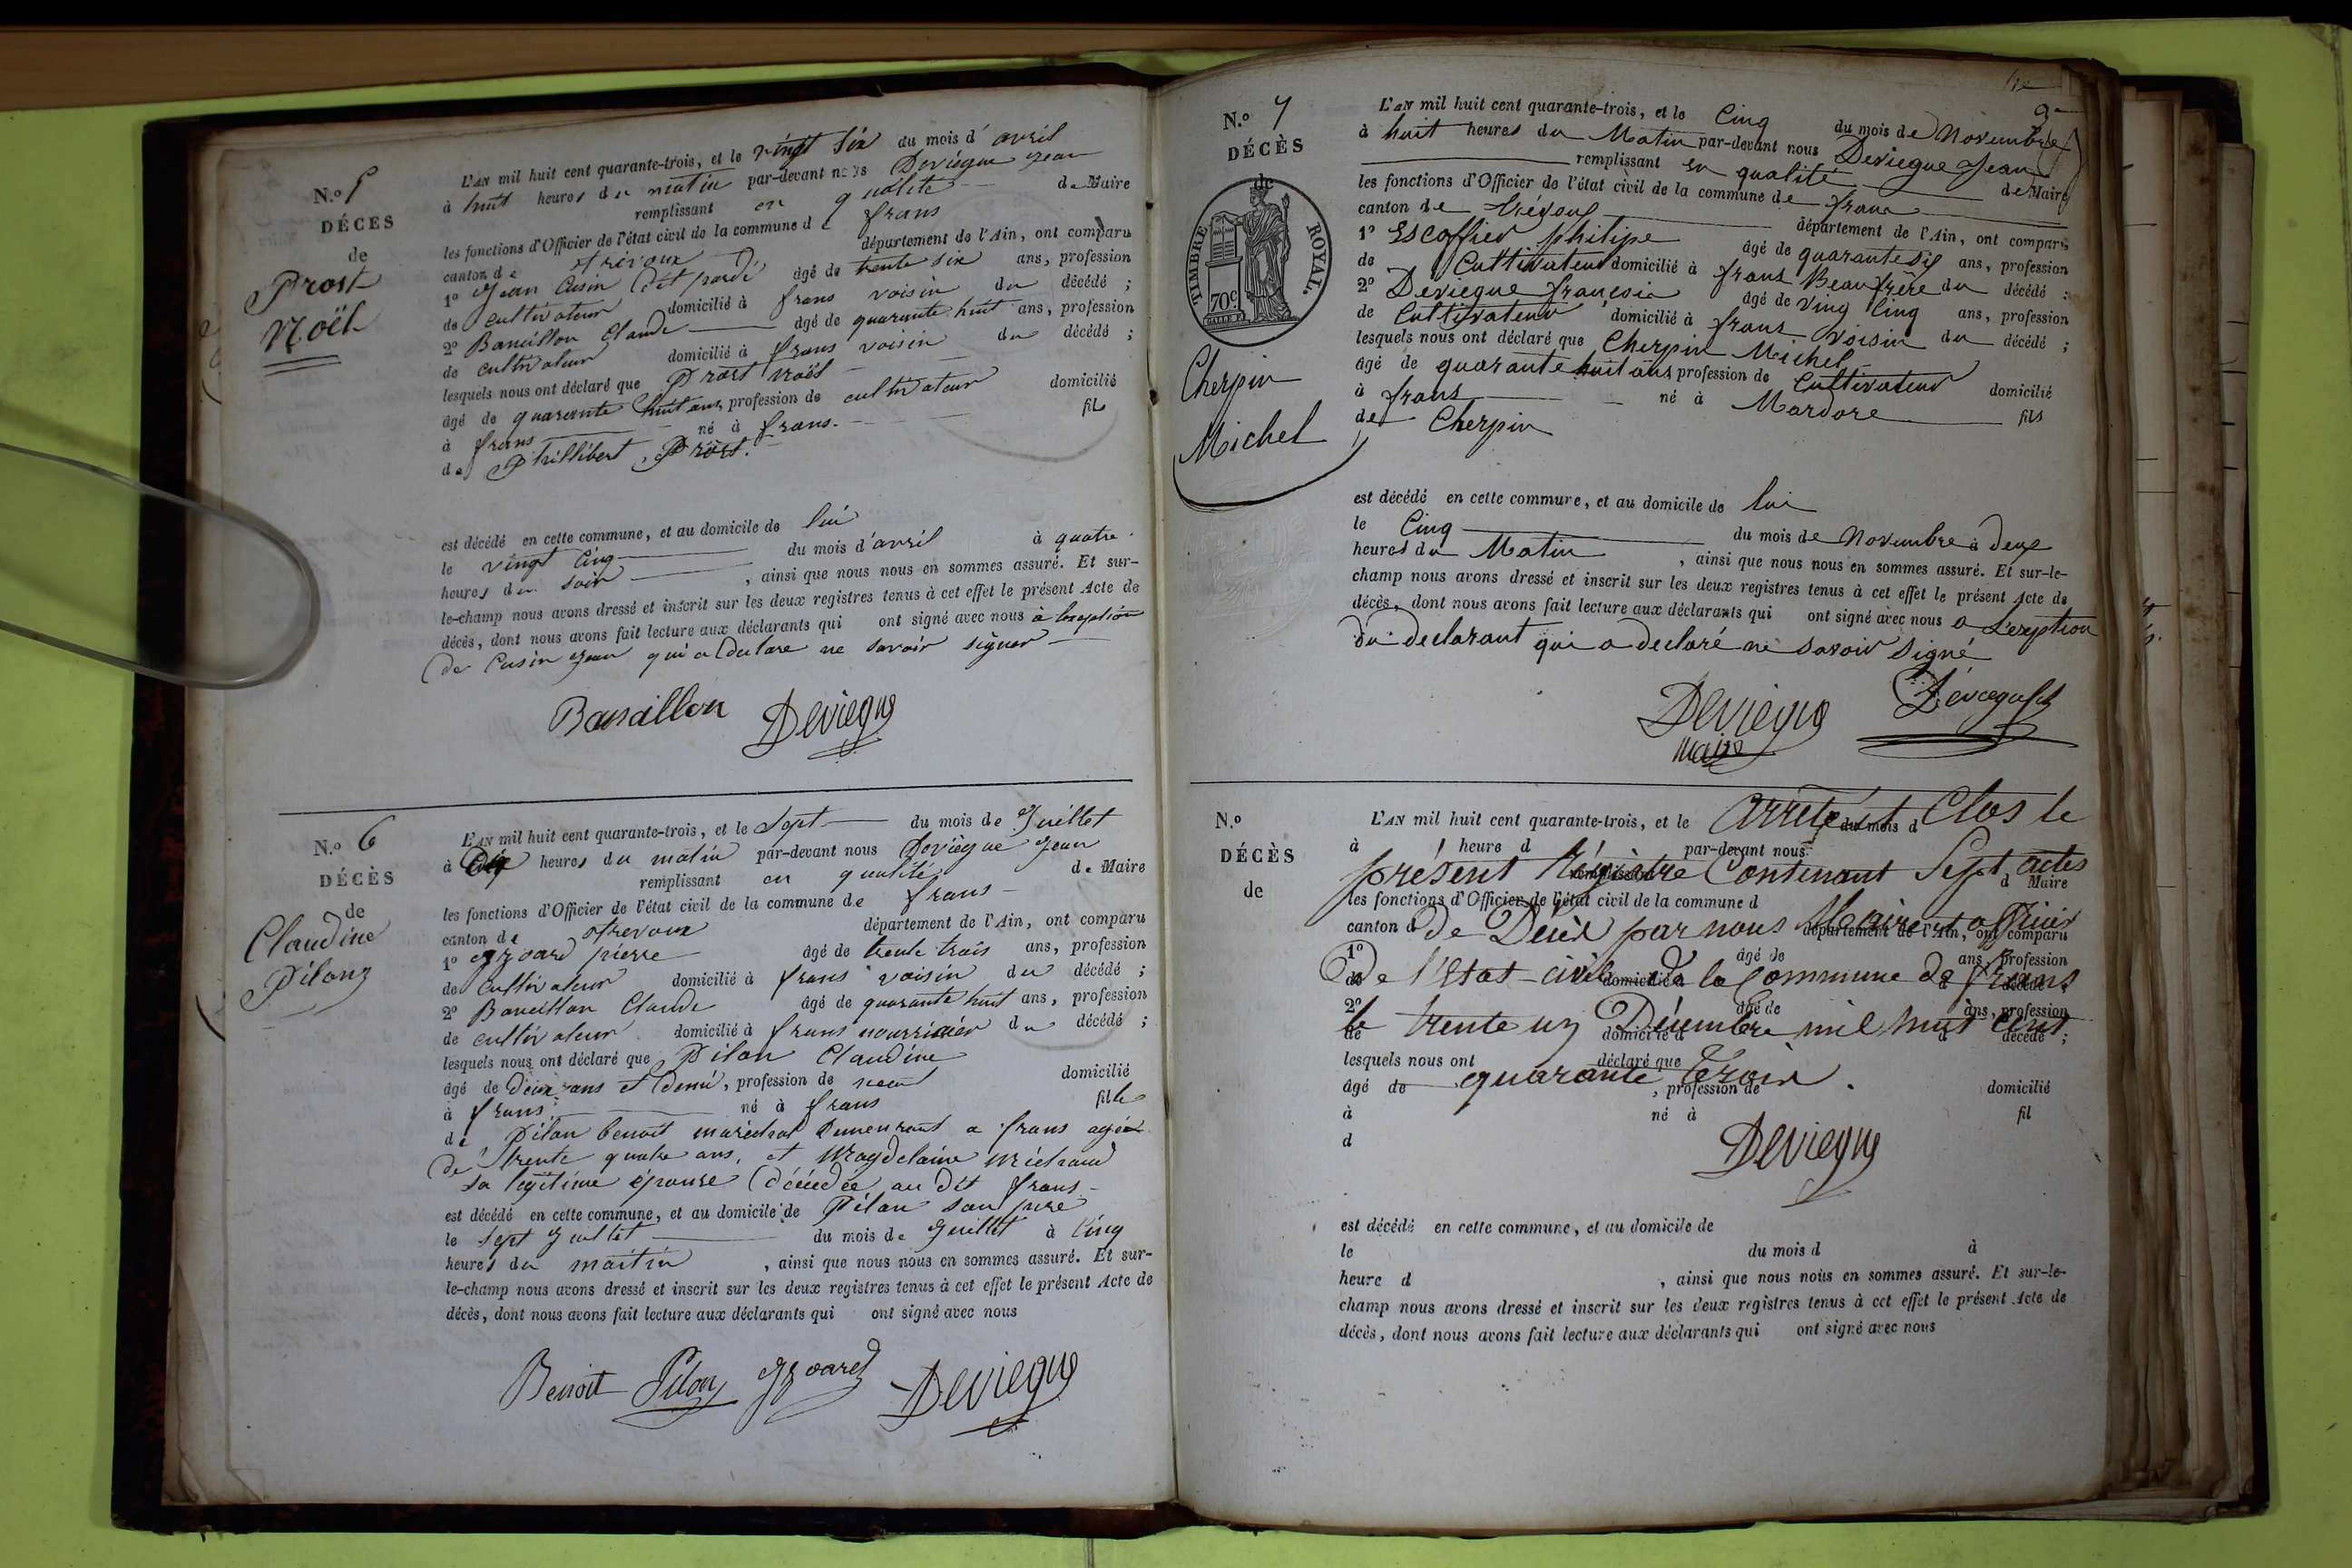 N.º 5
DÉCÈS
de
Prost
Noël
L'AN mil huit cent quarante-trois, et le vingt six du mois d'avril
à huit heures du matin par-devant nous Deviegue jean
remplissant en qualité de Maire
les fonctions d'Officier de l'état civil de la commune de frans
canton de trevoux département de l'Ain, ont comparu
1º jean Cusin dit âgé de trente six ans, profession
de cultivateur domicilié à frans voisin du décédé ;
2º Banaillon Claude âgé de quarante huit ans, profession
de cultivateur domicilié à frans voisin du décédé ;
lesquels nous ont déclaré que Prost Noël
âgé de quarante huit ans, profession de cultivateur domicilié
à frans né à frans. fils
de Phillibert Prost.
est décédé en cette commune, et au domicile de lui
le vingt cinq du mois d'avril à quatre
heures du soir , ainsi que nous nous en sommes assuré. Et sur-
le-champ nous avons dressé et inscrit sur les deux registres tenus à cet effet le présent Acte de
décès, dont nous avons fait lecture aux déclarants qui ont signé avec nous à lexception
de Cusin jean qui a declare ne savoir signer
Banaillon Deviegue
N.º 6
DÉCÈS
de
Claudine
Pilon
L'AN mil huit cent quarante-trois, et le Sept du mois de Juillet
à dix heures du matin par-devant nous Deviegue jean
remplissant en qualité de Maire
les fonctions d'Officier de l'état civil de la commune de frans
canton de trevoux département de l'Ain, ont comparu
1º pierre âgé de trente trois ans, profession
de cultivateur domicilié à frans voisin du décédé ;
2º Banaillon Claude âgé de quarante huit ans, profession
de cultivateur domicilié à frans nourricier du décédé ;
lesquels nous ont déclaré que Pilon Claudine
âgé de deux ans et demi, profession de domicilié
à frans né à frans fille
de Pilon benoit maréchal demeurant a frans agée
de trente quatre ans, et Magdelaine Michaud
sa légitime épouse décédée au dit frans
est décédé en cette commune, et au domicile de Pilon son père
le sept juillet du mois de juillet à cinq
heures du martin , ainsi que nous nous en sommes assuré. Et sur-
le-champ nous avons dressé et inscrit sur les deux registres tenus à cet effet le présent Acte de
décès, dont nous avons fait lecture aux déclarants qui ont signé avec nous
Benoit Pilon Deviegue
N.º 7
DÉCÈS
de
TIMBRE ROYAL.
70c
Cherpin
Michel
L'AN mil huit cent quarante-trois, et le Cinq du mois de Novembre
à huit heures du Matin par-devant nous Deviegue Jean
remplissant en qualité de Maire
les fonctions d'Officier de l'état civil de la commune de frans
canton de trévoux département de l'Ain, ont comparu
1º Escoffier philipe âgé de quarante six ans, profession
de Cultivateur domicilié à frans Beaufrère du décédé ;
2º Deviegue françois âgé de ving Cinq ans, profession
de Cultivateur domicilié à frans voisin du décédé ;
lesquels nous ont déclaré que Cherpin Michel
âgé de quarante huit ans profession de Cultivateur domicilié
à frans né à Mardore fils
de Cherpin
est décédé en cette commune, et au domicile de lui
le Cinq du mois de Novembre à deux
heures du Matin , ainsi que nous nous en sommes assuré. Et sur-le-
champ nous avons dressé et inscrit sur les deux registres tenus à cet effet le présent Acte de
décès, dont nous avons fait lecture aux déclarants qui ont signé avec nous a L'exeption
du declarant qui a declaré ne savoir signé
Deviegue
Maire
N.º
DÉCÈS
de
L'AN mil huit cent quarante-trois, et le du mois d
Arrêté et Clos le
à heure d par-devant nous
présent Régistre Contenant Sept actes
remplissant d Maire
les fonctions d'Officier de l'état civil de la commune d
canton d département de l'Ain, ont comparu
de Décès par nous Maire et officier
1º âgé de ans, profession
de l'Etat-civil de la Commune de frans
de domicilié à d décédé ;
2º âgé de ans, profession
le trente un Décembre mil huit cent
de domicilié à d décédé ;
lesquels nous ont déclaré que
quarante trois.
âgé de , profession de domicilié
à né à fil
d
Deviegue
est décédé en cette commune, et au domicile de
le du mois d à
heure d , ainsi que nous nous en sommes assuré. Et sur-le-
champ nous avons dressé et inscrit sur les deux registres tenus à cet effet le présent Acte de
décès, dont nous avons fait lecture aux déclarants qui ont signé avec nous